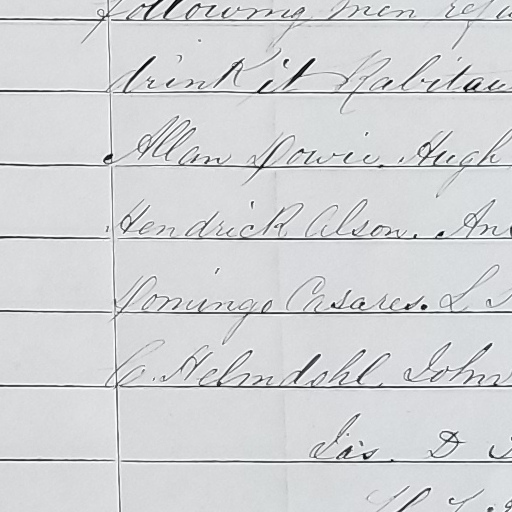 following men refu
drink it Rabitau
Allan Dowie. Hugh
Hendrick Olson. An
Domingo Casares. L
C. Helmdohl. John
Jas. D